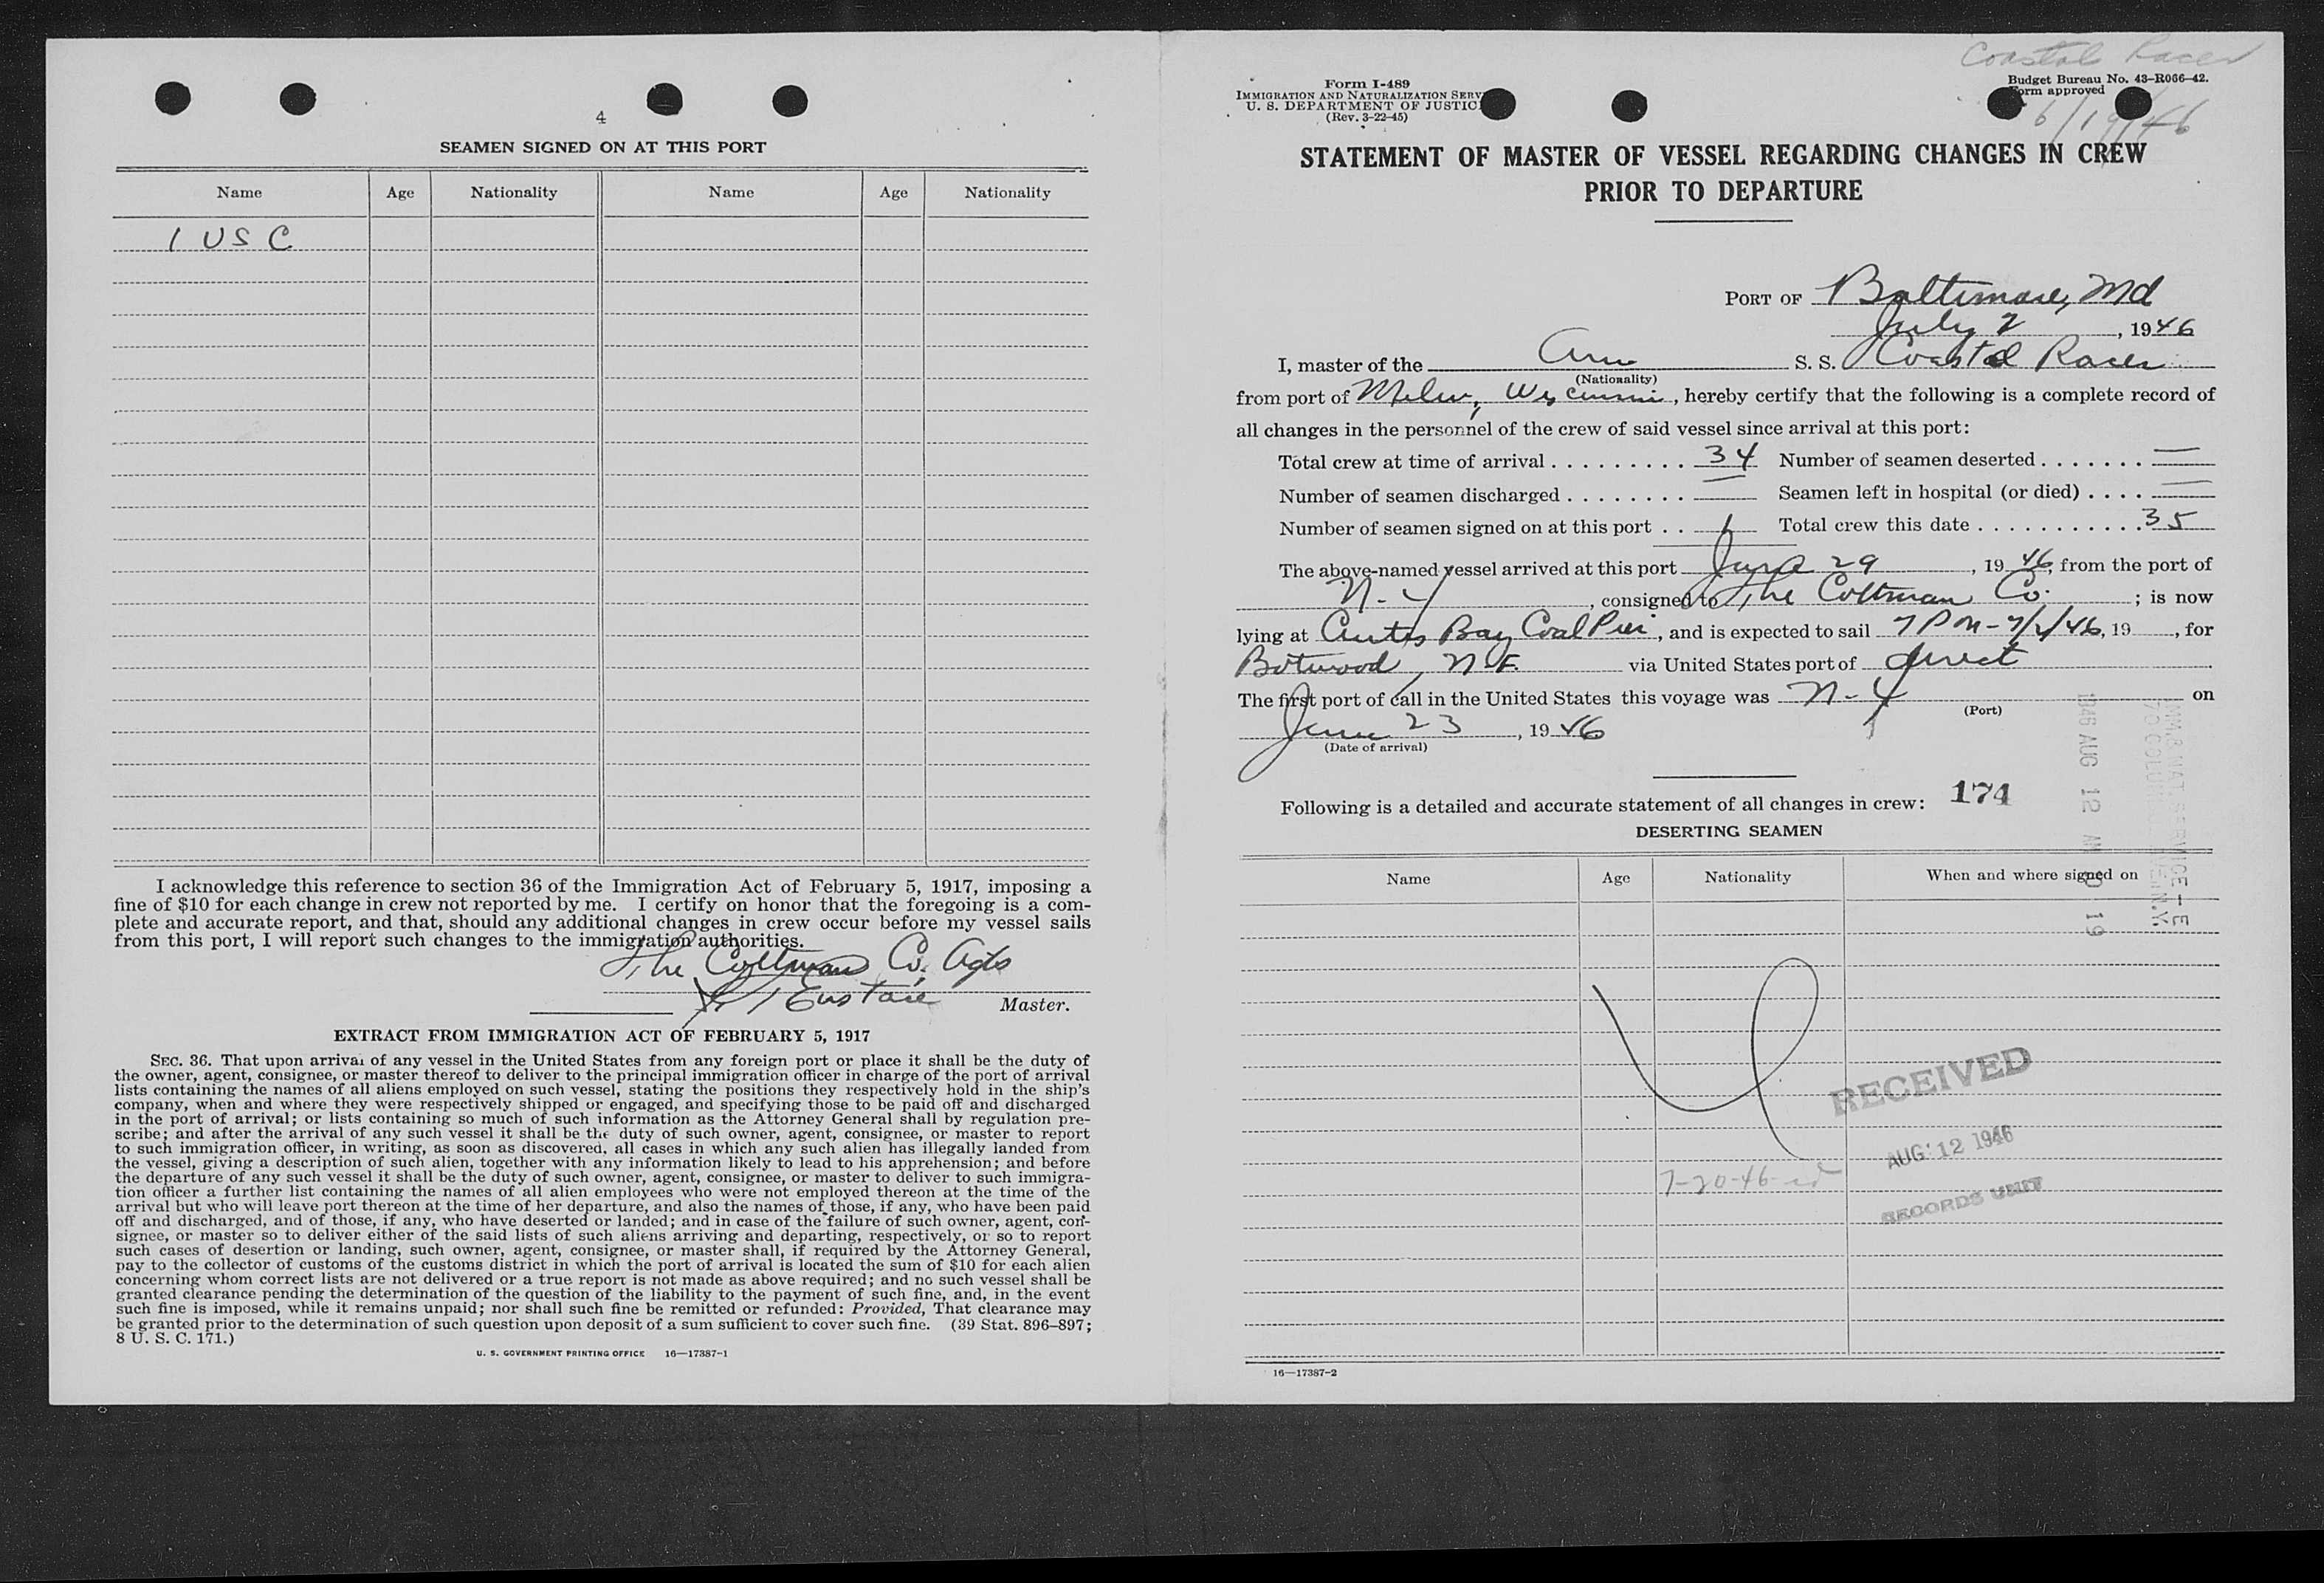 4
SEAMEN SIGNED ON AT THIS PORT
Name Age Nationality Name Age Nationality
1 USC
I acknowledge this reference to section 36 of the Immigration Act of February 5, 1917, imposing a
fine of $10 for each change in crew not reported by me. I certify on honor that the foregoing is a com-
plete and accurate report, and that, should any additional changes in crew occur before my vessel sails
from this port, I will report such changes to the immigration authorities.
The Cottman Co. Agts
Eustace Master.
EXTRACT FROM IMMIGRATION ACT OF FEBRUARY 5, 1917
SEC. 36. That upon arrival of any vessel in the United States from any foreign port or place it shall be the duty of
the owner, agent, consignee, or master thereof to deliver to the principal immigration officer in charge of the port of arrival
lists containing the names of all aliens employed on such vessel, stating the positions they respectively hold in the ship's
company, when and where they were respectively shipped or engaged, and specifying those to be paid off and discharged
in the port of arrival; or lists containing so much of such information as the Attorney General shall by regulation pre-
scribe; and after the arrival of any such vessel it shall be the duty of such owner, agent, consignee, or master to report
to such immigration officer, in writing, as soon as discovered, all cases in which any such alien has illegally landed from
the vessel, giving a description of such alien, together with any information likely to lead to his apprehension; and before
the departure of any such vessel it shall be the duty of such owner, agent, consignee, or master to deliver to such immigra-
tion officer a further list containing the names of all alien employees who were not employed thereon at the time of the
arrival but who will leave port thereon at the time of her departure, and also the names of those, if any, who have been paid
off and discharged, and of those, if any, who have deserted or landed; and in case of the failure of such owner, agent, con-
signee, or master so to deliver either of the said lists of such aliens arriving and departing, respectively, or so to report
such cases of desertion or landing, such owner, agent, consignee, or master shall, if required by the Attorney General,
pay to the collector of customs of the customs district in which the port of arrival is located the sum of $10 for each alien
concerning whom correct lists are not delivered or a true report is not made as above required; and no such vessel shall be
granted clearance pending the determination of the question of the liability to the payment of such fine, and, in the event
such fine is imposed, while it remains unpaid; nor shall such fine be remitted or refunded: Provided, That clearance may
be granted prior to the determination of such question upon deposit of a sum sufficient to cover such fine. (39 Stat. 896-897;
8 U. S. C. 171.)
U. S. GOVERNMENT PRINTING OFFICE 16—17387-1
Coastal Racer
Form I-489
IMMIGRATION AND NATURALIZATION SERV
U. S. DEPARTMENT OF JUSTIC
(Rev. 3-22-45)
Budget Bureau No. 43-R066-42.
Form approved
6/19/46
STATEMENT OF MASTER OF VESSEL REGARDING CHANGES IN CREW
PRIOR TO DEPARTURE
PORT OF Baltimore, Md
July 2, 1946
I, master of the Am S. S. Coastal Racer
(Nationality)
from port of Milw, Wisconsin, hereby certify that the following is a complete record of
all changes in the personnel of the crew of said vessel since arrival at this port:
Total crew at time of arrival 34 Number of seamen deserted —
Number of seamen discharged — Seamen left in hospital (or died) —
Number of seamen signed on at this port 1 Total crew this date 35
The above-named vessel arrived at this port June 29, 1946, from the port of
N-Y, consigned to The Cottman Co.; is now
lying at Curtis Bay Coal Pier, and is expected to sail 7 PM-7/2/46, 19, for
Botwood, N.F. via United States port of direct
The first port of call in the United States this voyage was N-Y on
(Port)
June 23, 1946
(Date of arrival)
Following is a detailed and accurate statement of all changes in crew: 174
DESERTING SEAMEN
Name Age Nationality When and where signed on
1946 AUG 12 AM 10 19
RECEIVED
AUG 12 1946
RECORDS UNIT
7-20-46
16—17387-2